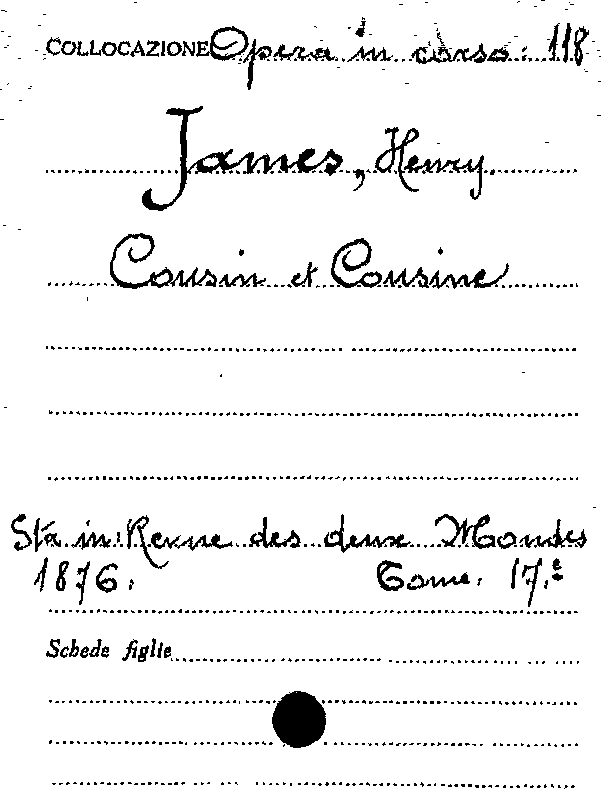 COLLOCAZIONE Opera in corso: 118
James, Henry.
Cousin et Cousine
Sta in: Revue des deux Mondes
1876. Tome. 17.e
Schede figlie